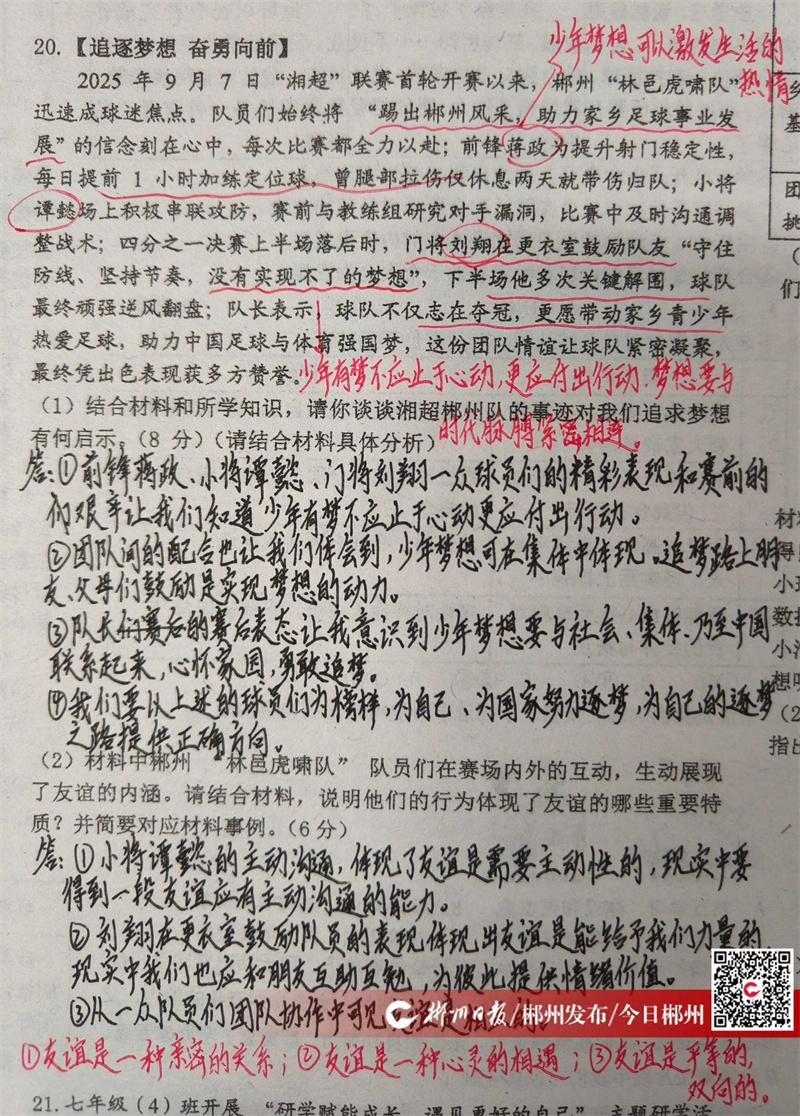 少年梦想可以激发生活的
热情
20.【追逐梦想 奋勇向前】
2025 年 9 月 7 日“湘超”联赛首轮开赛以来，郴州“林邑虎啸队”
迅速成球迷焦点。队员们始终将 “踢出郴州风采，助力家乡足球事业发
展”的信念刻在心中，每次比赛都全力以赴；前锋蒋政为提升射门稳定性，
每日提前 1 小时加练定位球，曾腿部拉伤仅休息两天就带伤归队；小将
谭懿场上积极串联攻防，赛前与教练组研究对手漏洞，比赛中及时沟通调
整战术；四分之一决赛上半场落后时，门将刘翔在更衣室鼓励队友“守住
防线、坚持节奏，没有实现不了的梦想”，下半场他多次关键解围，球队
最终顽强逆风翻盘；队长表示，球队不仅志在夺冠，更愿带动家乡青少年
热爱足球，助力中国足球与体育强国梦，这份团队情谊让球队紧密凝聚，
最终凭出色表现获多方赞誉。少年有梦不应止于心动，更应付出行动.梦想要与
（1）结合材料和所学知识，请你谈谈湘超郴州队的事迹对我们追求梦想
有何启示。（8 分）（请结合材料具体分析）时代脉搏紧密相连。
答:①前锋蒋政、小将谭懿、门将刘翔一众球员们的精彩表现和赛前的
艰辛让我们知道少年有梦不应止于心动更应付出行动。
②团队间的配合也让我们体会到，少年梦想可在集体中体现。追梦路上朋
友、父母们鼓励是实现梦想的动力。
③队长的赛后表态让我意识到少年梦想要与社会、集体、乃至中国
联系起来，心怀家国，勇敢追梦。
④我们要以上述的球员们为榜样，为自己、为国家努力逐梦，为自己的逐梦
之路提供正确方向。
（2）材料中郴州 “林邑虎啸队” 队员们在赛场内外的互动，生动展现
了友谊的内涵。请结合材料，说明他们的行为体现了友谊的哪些重要特
质？并简要对应材料事例。（6 分）
答:①小将谭懿的主动沟通，体现了友谊是需要主动性的，现实中要
得到一段友谊应有主动沟通的能力。
②刘翔在更衣室鼓励队员的表现体现出友谊是能给予我们力量的，
现实中我们也应和朋友互助互勉，为彼此提供情绪价值。
③从一众队员们团队协作中可见
郴州日报/郴州发布/今日郴州
①友谊是一种亲密的关系；②友谊是一种心灵的相遇；③友谊是平等的，
双向的。
21.七年级（4）班开展 “研学赋能成长，遇见更好的自己” 主题研学活
乡
基
团
挑
（
们
材料
得
小球
数据
小消
想吧
（2
指出